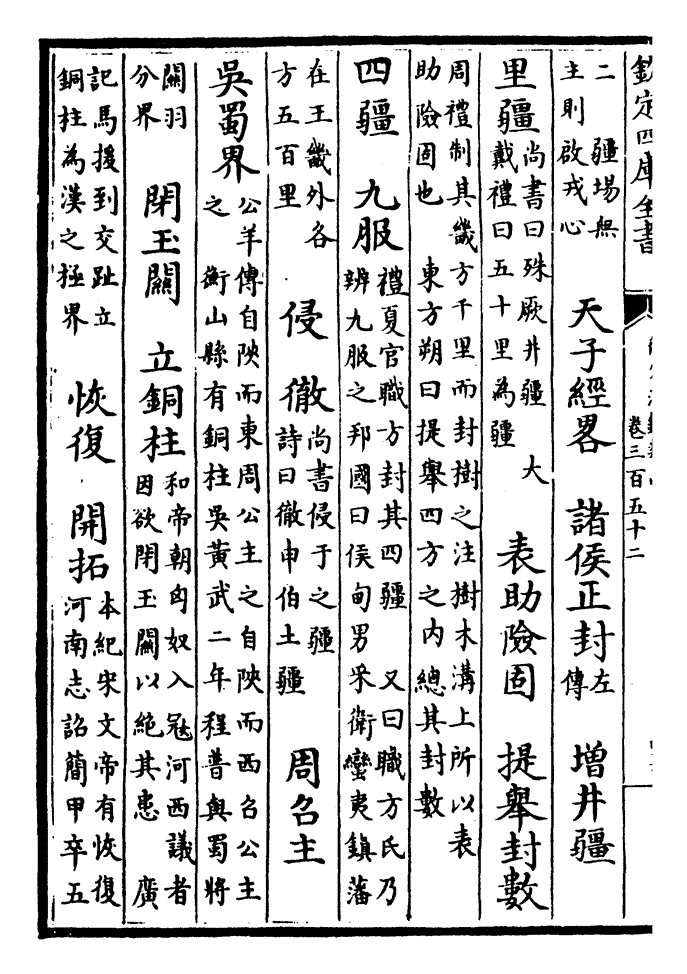 欽定四庫全書
卷三百五十二
二　疆場無
主則啟戎心
天子經畧　諸侯正封
左
傳
增井疆
里疆
尚書曰殊厥井疆　大
戴禮曰五十里為疆
表助險固　提舉封數
周禮制其畿方千里而封樹之注樹木溝上所以表
助險固也　東方朔曰提舉四方之内總其封數
四疆　九服
禮夏官職方封其四疆　又曰職方氏乃
辨九服之邦國曰侯甸男采衛蠻夷鎮藩
在王畿外各
方五百里
侵徹
尚書侵于之疆
詩曰徹申伯土疆
周召主
吳蜀界
公羊傳自陜而東周公主之自陜而西召公主
之　衡山縣有銅柱吳黃武二年程普與蜀將
關羽
分界
閉玉關　立銅柱
和帝朝匈奴入冦河西議者
因欲閉玉關以絶其患　廣
記馬援到交趾立
銅柱為漢之極界
恢復　開拓
本紀宋文帝有恢復
河南志詔簡甲卒五